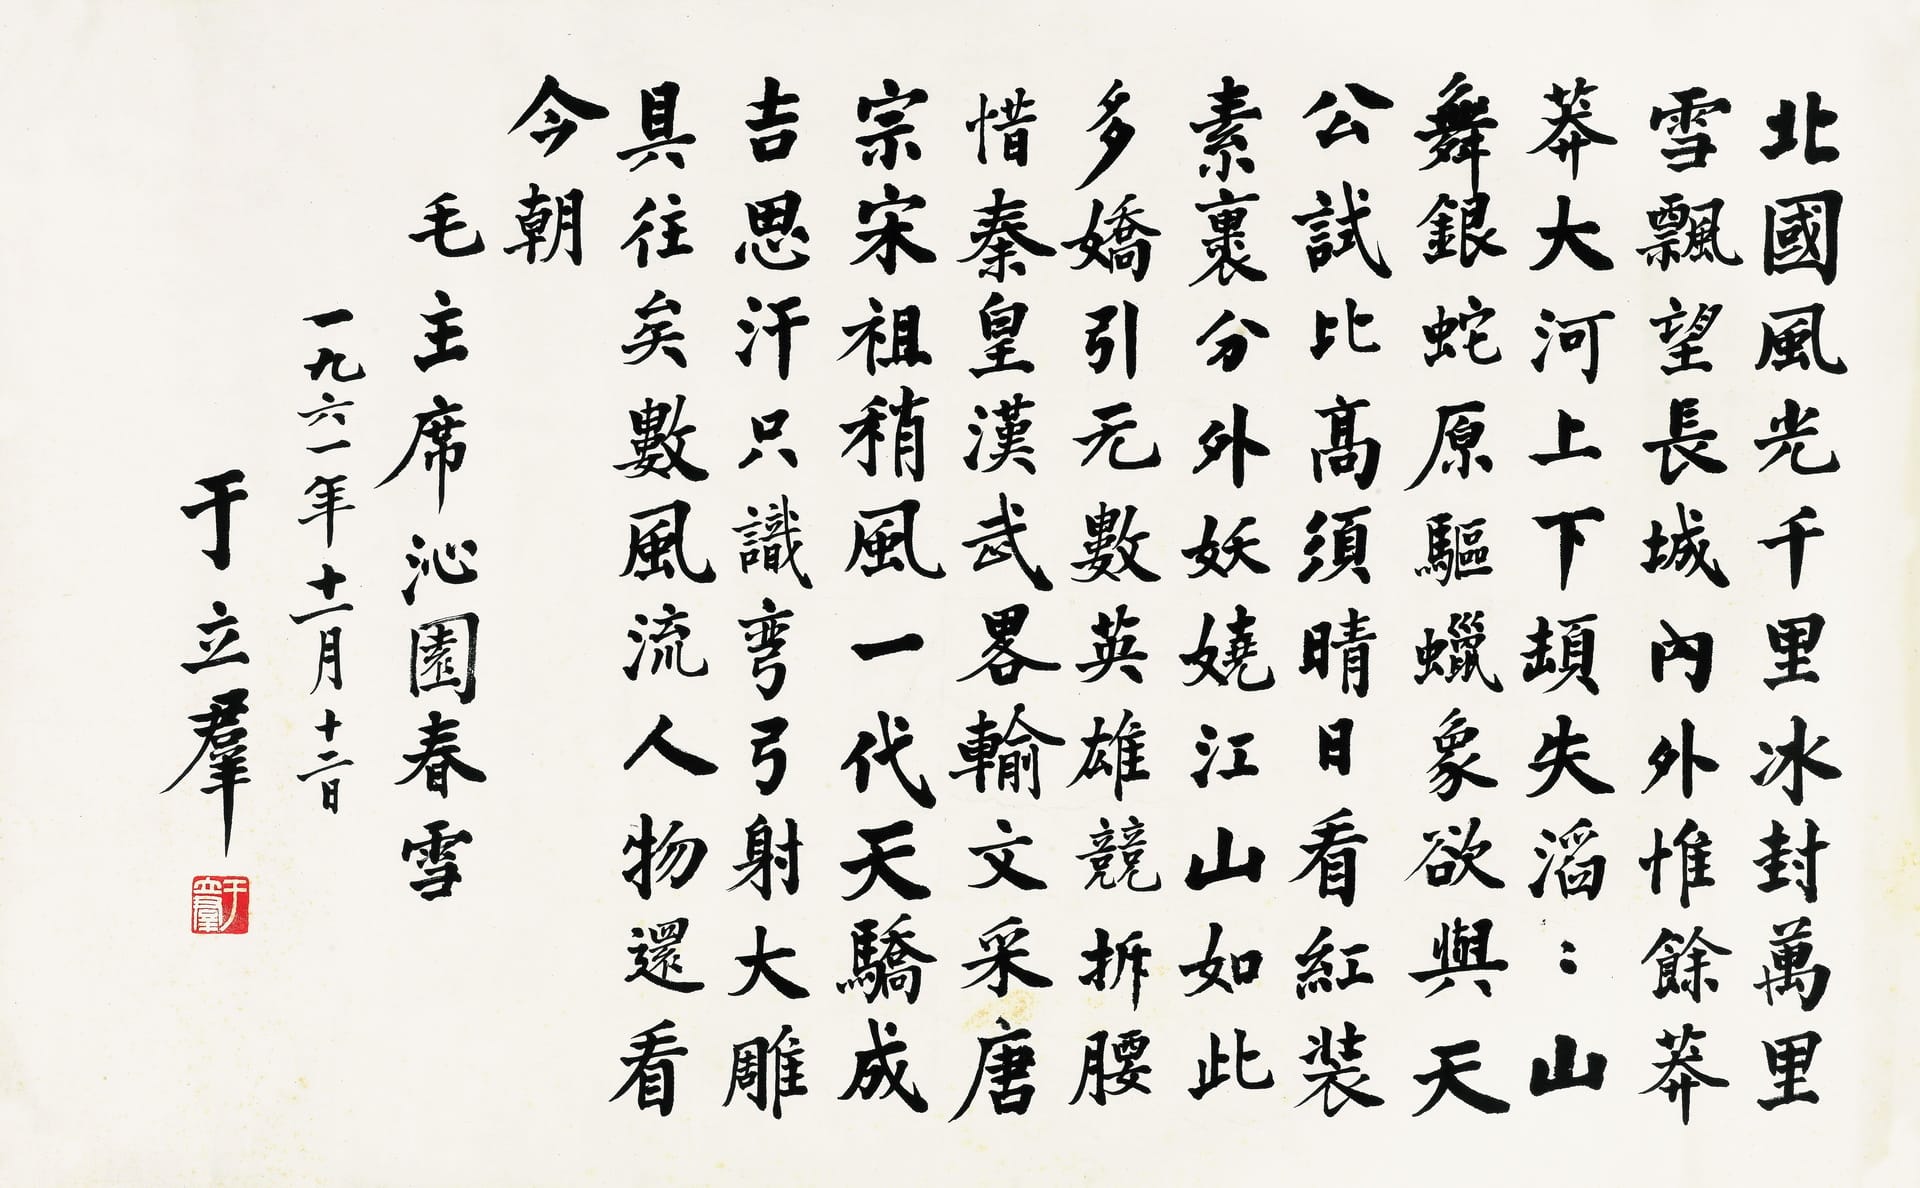 北國風光千里冰封萬里
雪飄望長城內外惟餘莽
莽大河上下頓失滔〻山
舞銀蛇原驅蠟象欲與天
公試比高須晴日看紅裝
素裹分外妖嬈江山如此
多嬌引无數英雄競拆腰
惜秦皇漢武畧輸文采唐
宗宋祖稍風一代天驕成
吉思汗只識弯弓射大雕
具往矣數風流人物還看
今朝
毛主席沁園春雪
一九六一年十一月十二日
于立羣
于立羣